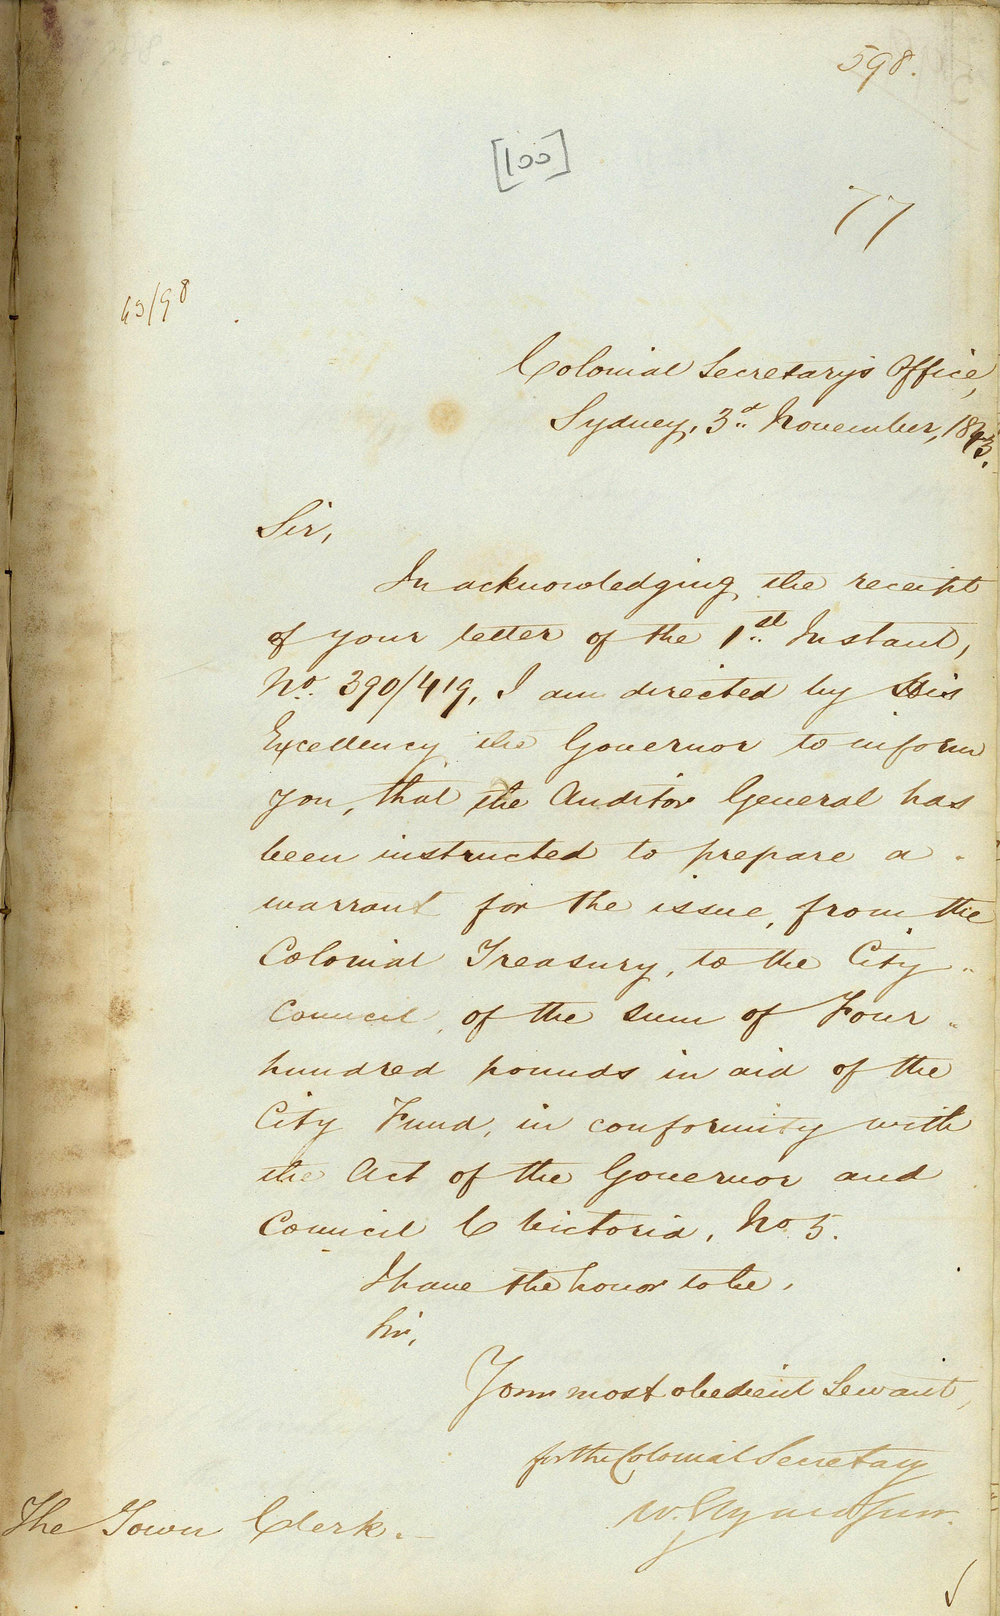 598.
[100]
77
43/98
Colonial Secretary's Office,
Sydney, 3d. November, 1843.
Sir,
In acknowledging the receipt
of your letter of the 1st. Instant,
No. 390/419, I am directed by His
Excellency the Governor to inform
you, that the Auditor General has
been instructed to prepare a
warrant for the issue, from the
Colonial Treasury, to the City
Council, of the sum of Four
hundred pounds in aid of the
City Fund, in conformity with
the Act of the Governor and
Council 6 Victoria, No 5.
I have the honor to be,
Sir,
Your most obedient Servant,
for the Colonial Secretary
W. Elyard Junr.
The Town Clerk.